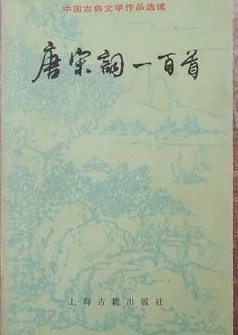 中国古典文学作品选读
唐宋词一百首
上海古籍出版社